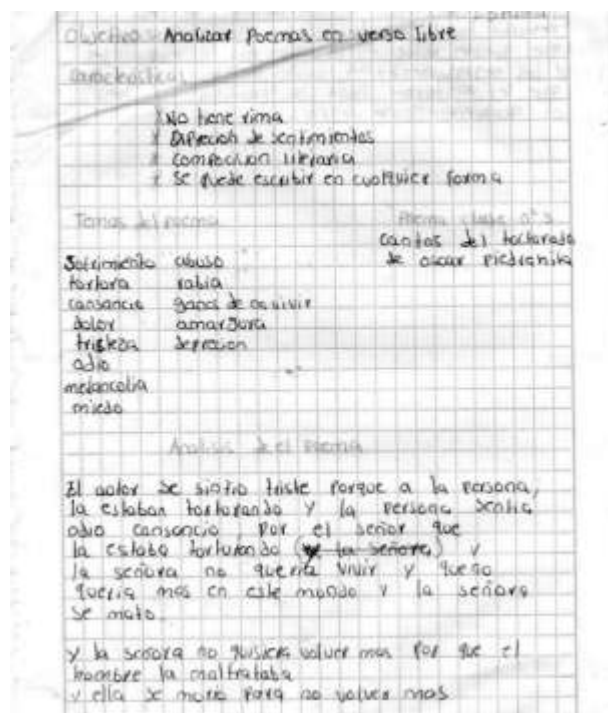 Objetivo: Analizar Poemas en verso libre
Caracteristicas
No tiene rima
de sentimientos
literaria
Se puede escribir en cualquier forma
Temas del poema
Poema clase n° 3
cantos del torturado
de oscar Piedrahita
Sufrimiento abuso
tortura rabia
cansancio ganas de
dolor amargura
tristeza depresion
odio
melancolia
miedo
Analisis de el Poema
El autor se sintio triste porque a la persona,
la estaban torturando y la persona sentia
odio cansancio por el señor que
la estaba torturando (y la señora) y
la señora no queria vivir y
queria mas en este mundo y la señora
se mato.
y la señora no volver mas por que el
hombre la maltrataba
y ella se para no volver mas